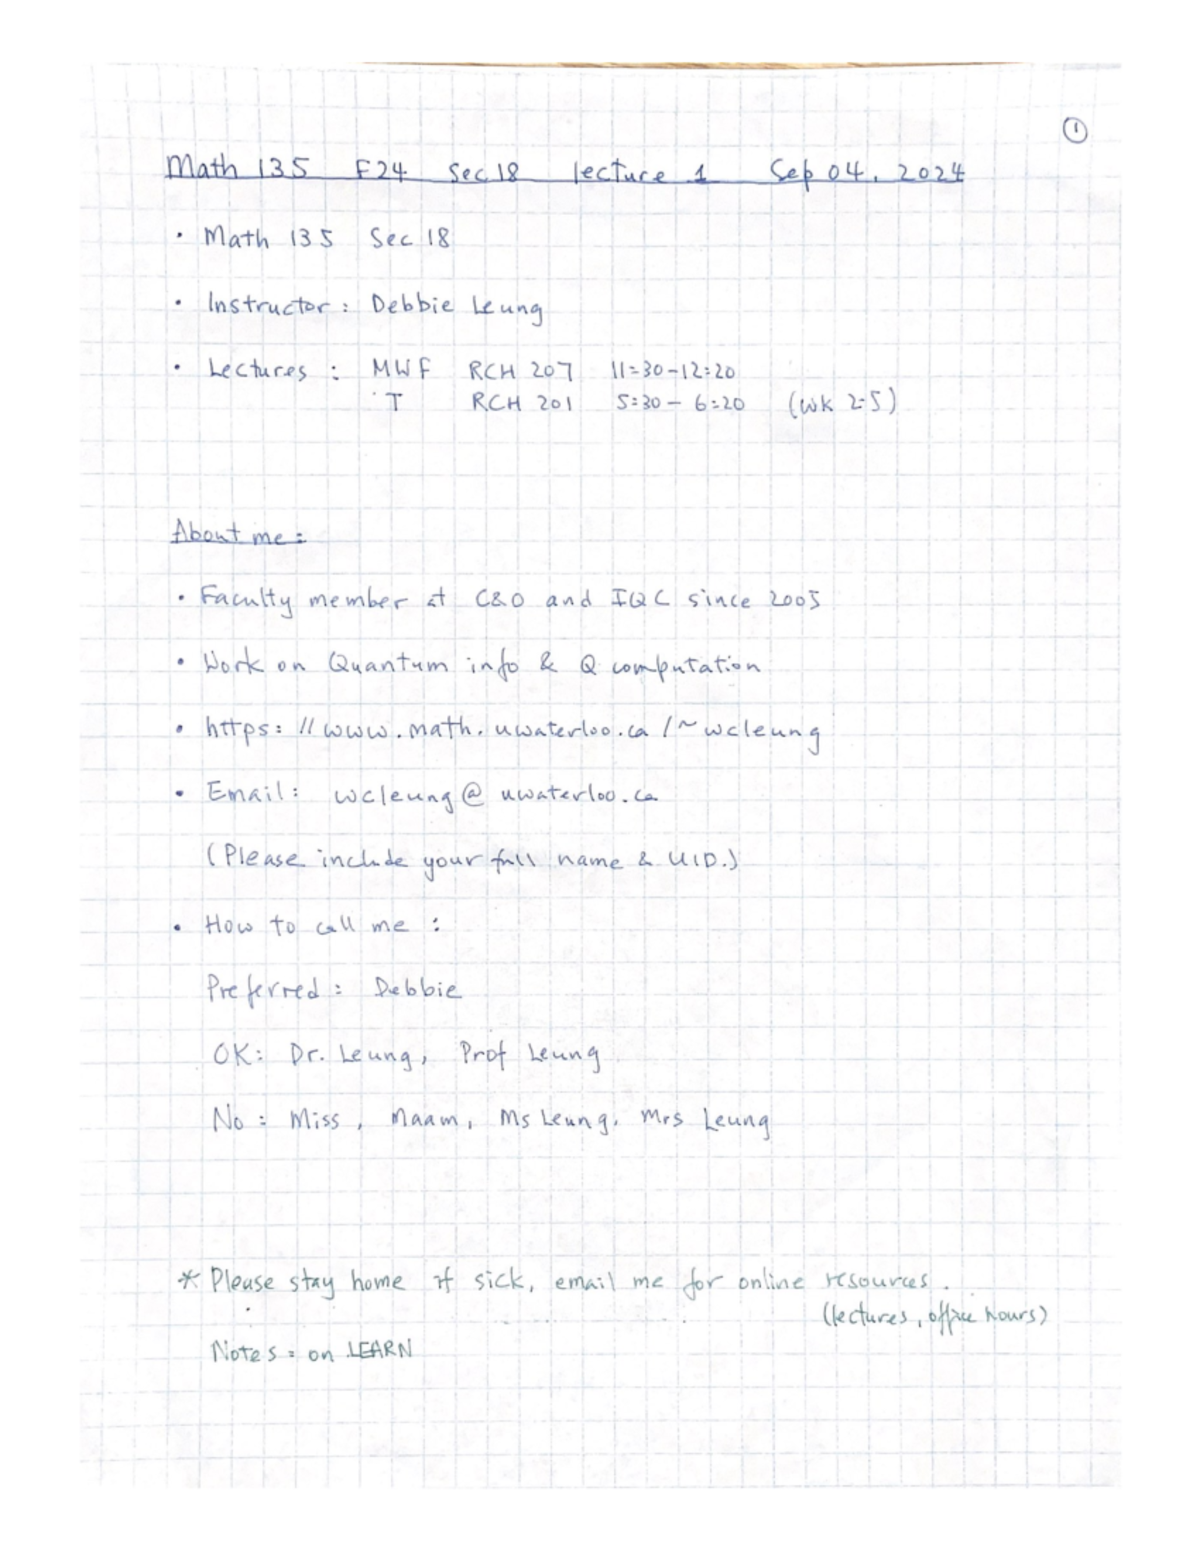 ①
Math 135 F24 Sec 18 lecture 1 Sep 04, 2024
• Math 135 Sec 18
• Instructor: Debbie Leung
• Lectures: MWF RCH 207 11:30-12:20
T RCH 201 5:30-6:20 (wk 2-5)
About me:
• Faculty member at C&O and IQC since 2005
• Work on Quantum info & Q computation
• https://www.math.uwaterloo.ca/~wcleung
• Email: wcleung@uwaterloo.ca
(Please include your full name & UID.)
• How to call me:
Preferred: Debbie
OK: Dr. Leung, Prof Leung
No: Miss, Maam, Ms Leung, Mrs Leung
* Please stay home if sick, email me for online resources.
(lectures, office hours)
Notes: on LEARN